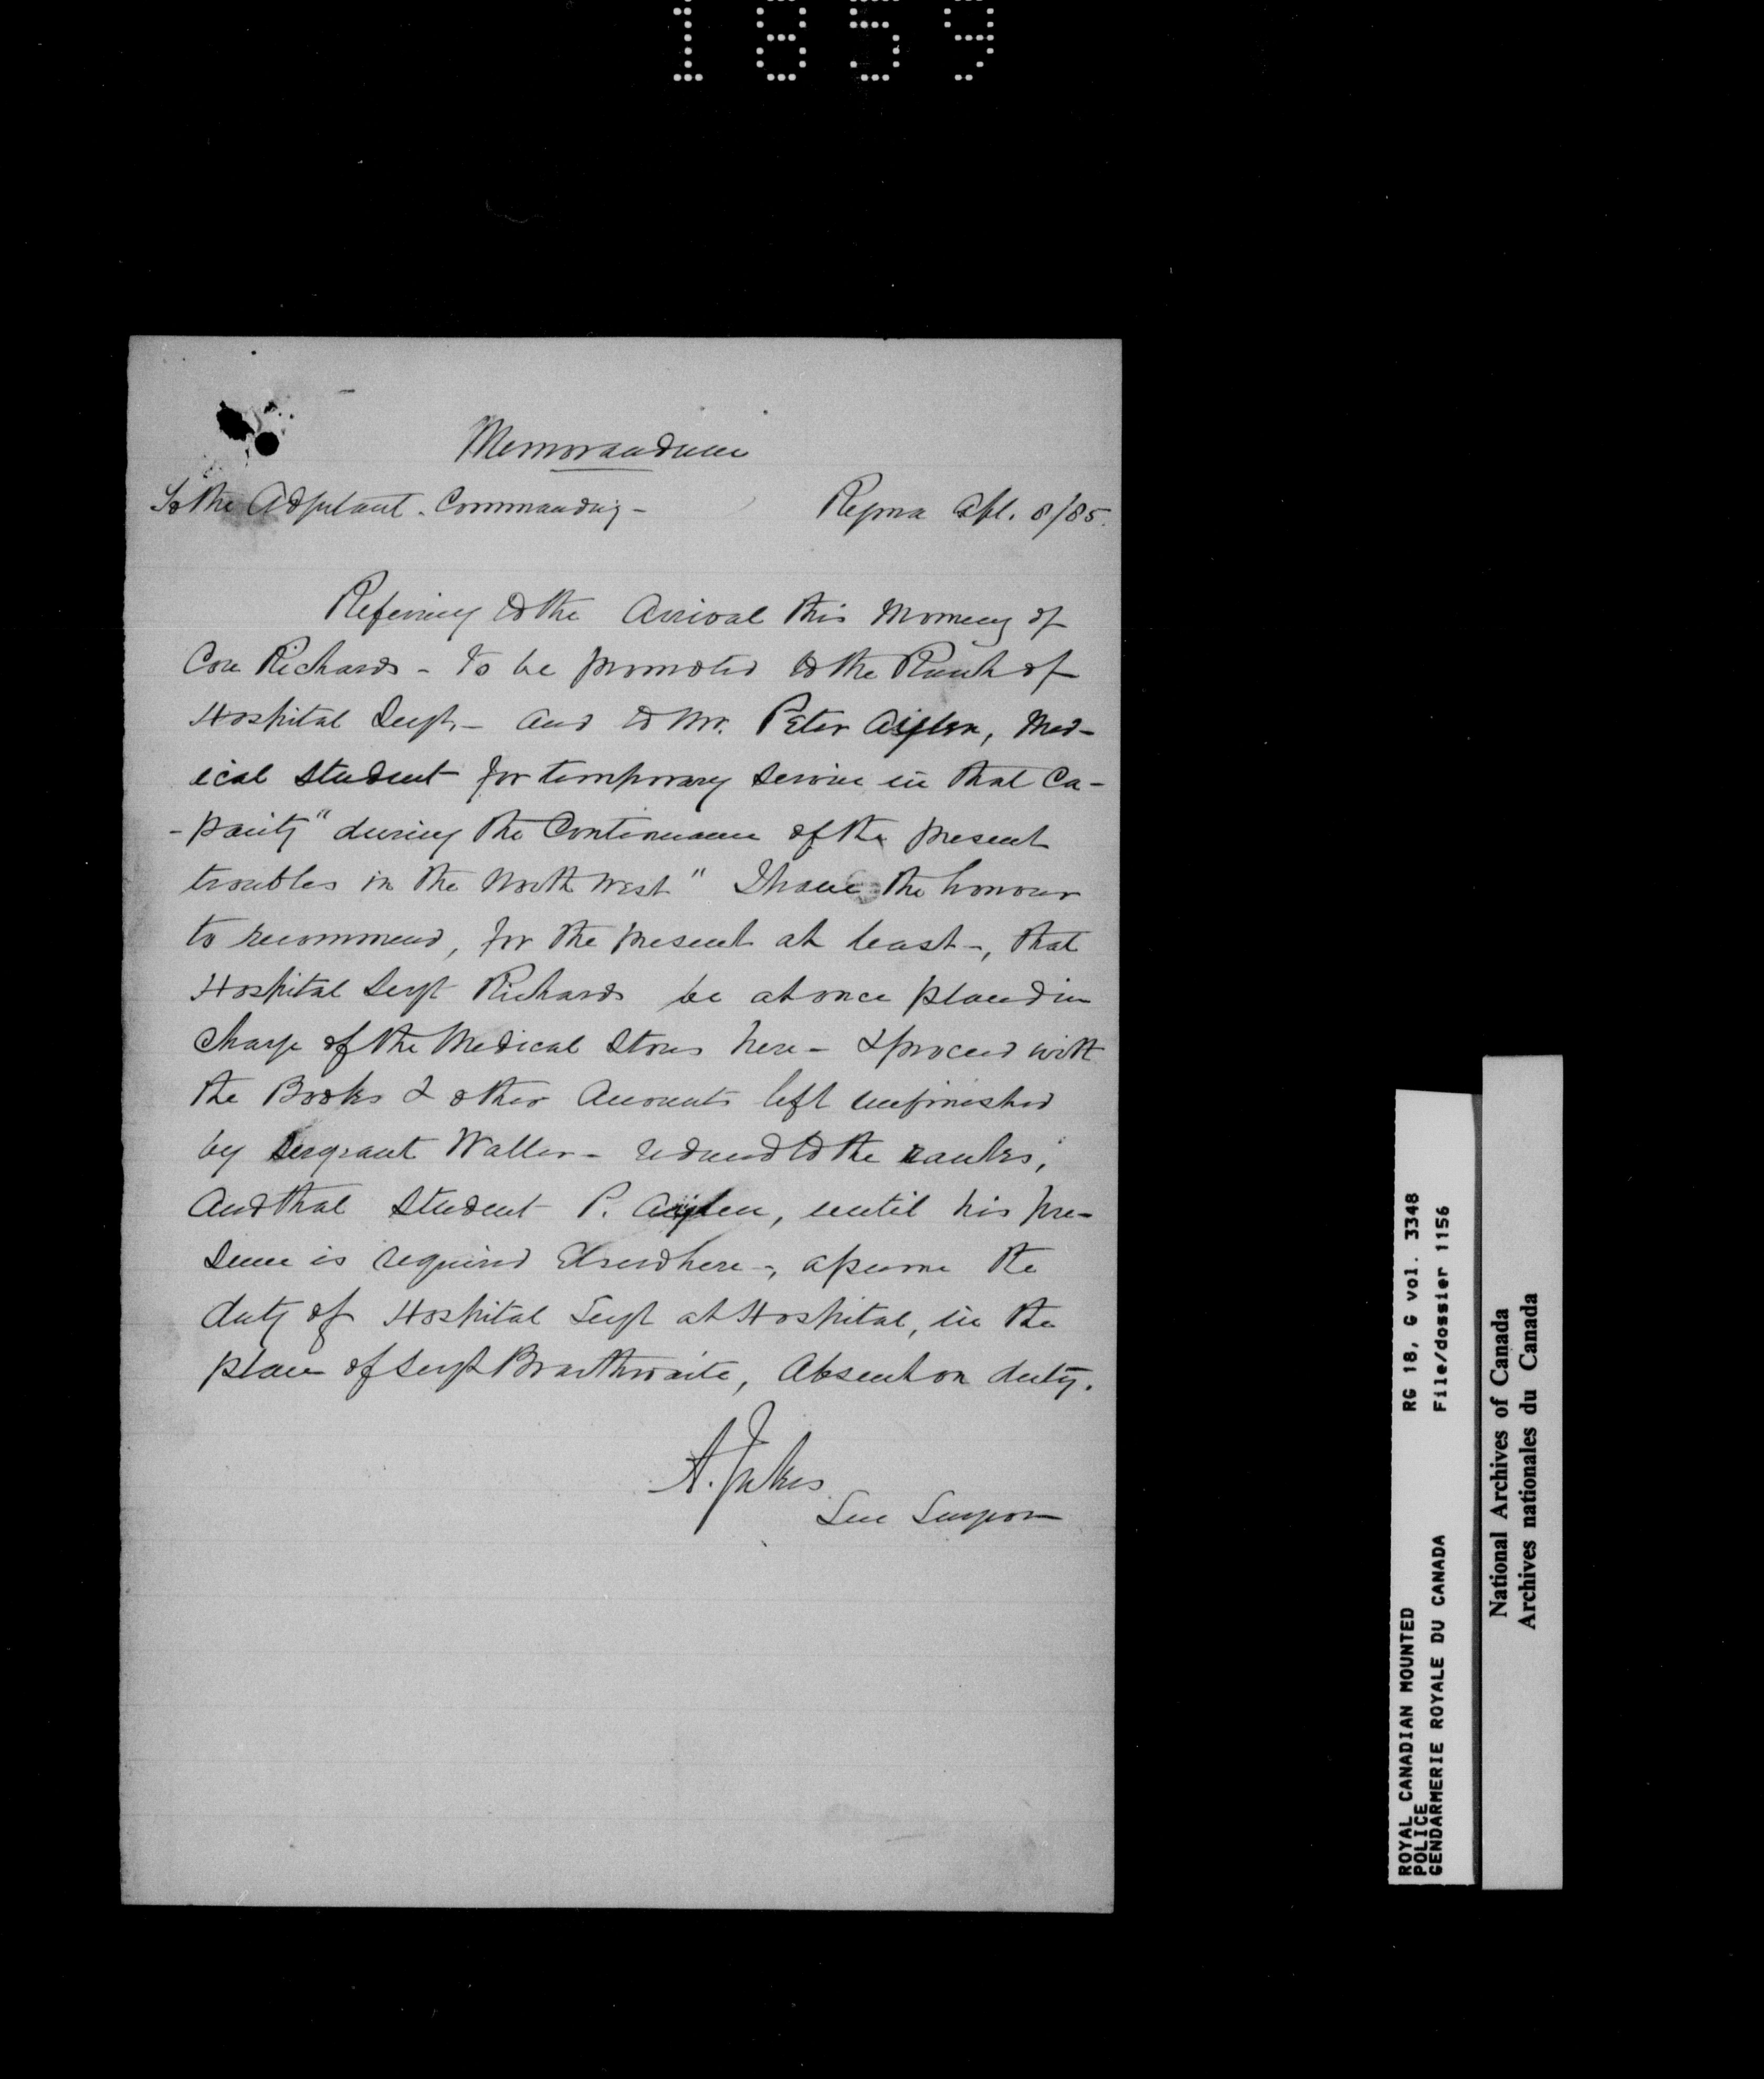 1859
Memorandum
To the Adjutant. Commanding -
Regina Apl. 8/85.
Referring to the Arrival this Morning of
Con Richards - to be promoted to the Rank of
Hospital Sergt. - and to Mr. Peter Aylen, Med-
ical Student for temporary Service in that Ca-
-pacity "during the Continuance of the present
troubles in the North West" I have the honour
to recommend, for the present at least -, that
Hospital Sergt Richards be at once placed in
charge of the Medical Stores here - & proceed with
the Books & other Accounts left unfinished
by Sergeant Waller - reduced to the ranks,
And that Student P. Aylen, until his pre-
sence is required Elsewhere -, assume the
duty of Hospital Sergt at Hospital, in the
place of Sergt Braithwaite, Absent on duty.
A. Jukes
Sen Surgeon
ROYAL CANADIAN MOUNTED
POLICE
GENDARMERIE ROYALE DU CANADA
RG 18, G vol. 3348
File/dossier 1156
National Archives of Canada
Archives nationales du Canada